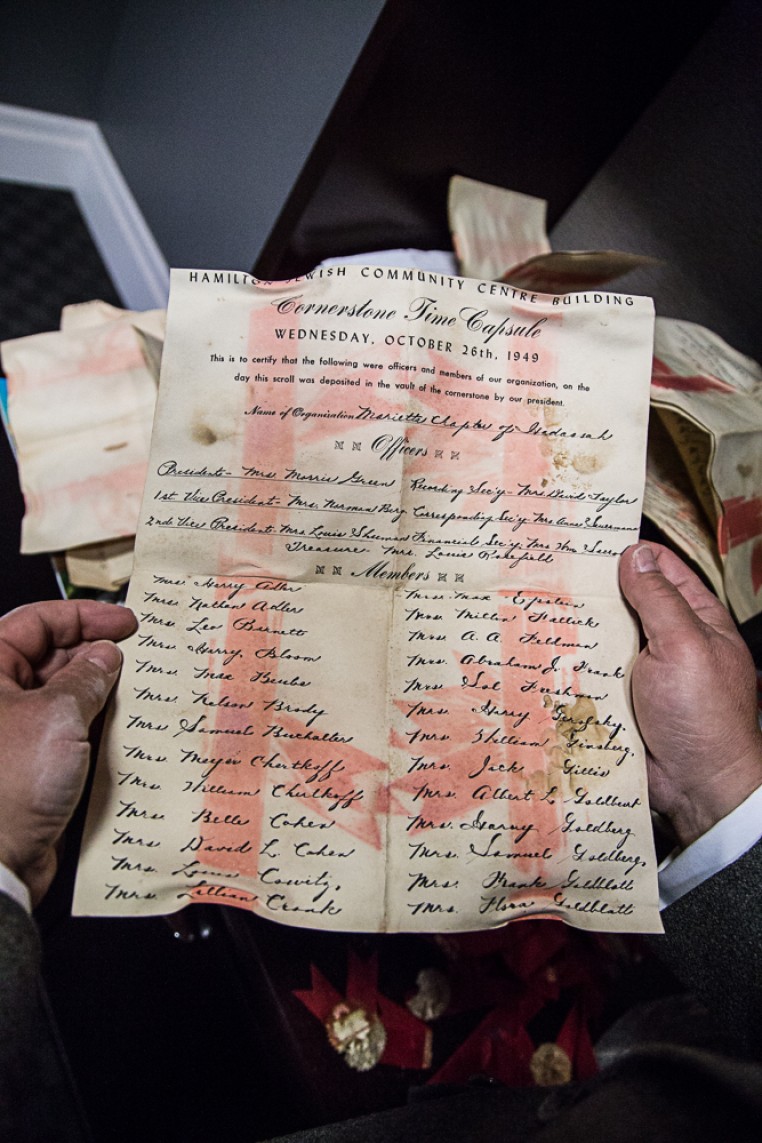 HAMILTON JEWISH COMMUNITY CENTRE BUILDING
Cornerstone Time Capsule
WEDNESDAY, OCTOBER 26th, 1949
This is to certify that the following were officers and members of our organization, on the
day this scroll was deposited in the vault of the cornerstone by our president.
Name of Organization Mariette Chapter of Hadassah
Officers
President - Mrs Morris Green Recording Sec'y - Mrs. David Taylor
1st Vice President - Mrs. Norman Berg Corresponding Sec'y - Mrs
2nd Vice President - Mrs Louis Shuman Financial Sec'y - Mrs Wm
Treasurer - Mrs. Louis
Members
Mrs. Harry Adler
Mrs. Nathan Adler
Mrs. Leo Barnett
Mrs. Harry Bloom
Mrs. Max Beube
Mrs. Nelson Brody
Mrs. Samuel Buchalter
Mrs. Meyer Chertkoff
Mrs. William Chertkoff
Mrs. Belle Cohen
Mrs. David L. Cohen
Mrs. Louis Cowitz,
Mrs. Lillian Cronk
Mrs. Max Epstein
Mrs. Milton Fallick
Mrs. A. A. Feldman
Mrs. Abraham J. Frank
Mrs. Sol Freshman
Mrs. Harry Gerofsky.
Mrs. William Ginsberg,
Mrs. Jack Gillis
Mrs. Albert L. Goldberg
Mrs. Harry Goldberg
Mrs. Samuel Goldberg,
Mrs. Frank Goldblatt
Mrs. Flora Goldblatt